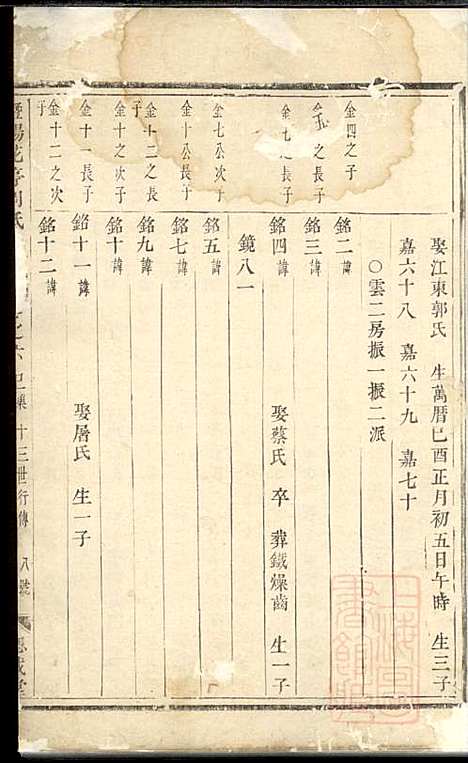 娶江東郭氏 生萬曆己酉正月初五日午時 生三子
嘉六十八 嘉六十九 嘉七十
○雲二房振一振二派
金四之子 銘二諱
金 之長子 銘三諱
金 之長子 銘四諱 娶蔡氏 卒 葬鐵燥齒 生一子
鏡八一
金七公長子 銘五諱
金十公長子 銘七諱
金十二之長子 銘九諱
金十之次子 銘十諱
金十一長子 銘十一諱 娶屠氏 生一子
金十二之次子 銘十二諱
十三世行傳 八號